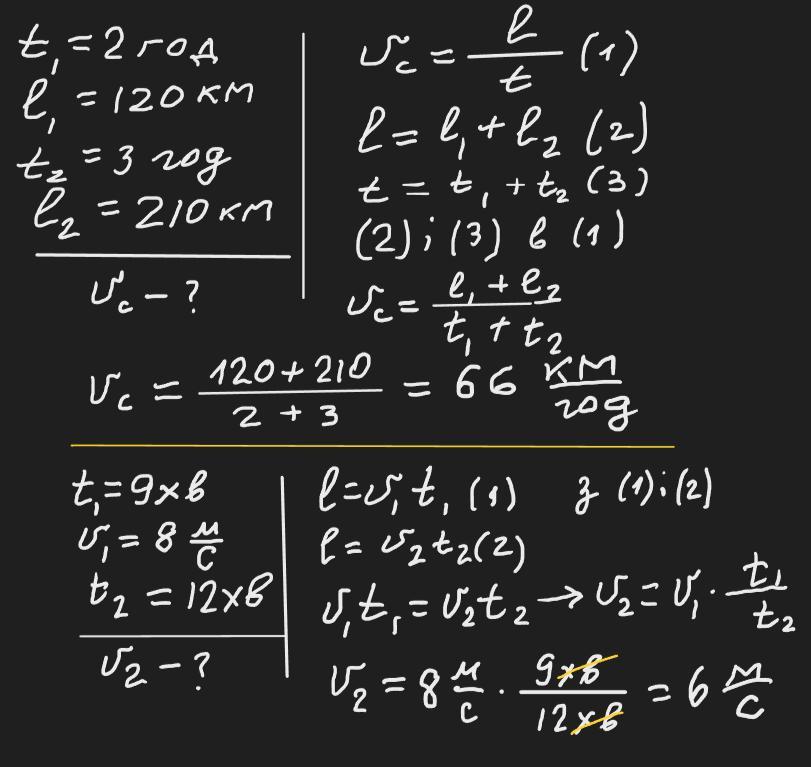 t₁ = 2 год
l₁ = 120 км
t₂ = 3 год
l₂ = 210 км
υc - ?
υc = l / t (1)
l = l₁ + l₂ (2)
t = t₁ + t₂ (3)
(2) i (3) в (1)
υc = l₁ + l₂ / t₁ + t₂
υc = 120 + 210 / 2 + 3 = 66 км / год
t₁ = 9 хв
υ₁ = 8 м / с
t₂ = 12 хв
υ₂ - ?
l = υ₁ t₁ (1) з (1) i (2)
l = υ₂ t₂ (2)
υ₁ t₁ = υ₂ t₂ → υ₂ = υ₁ · t₁ / t₂
υ₂ = 8 м / с · 9 хв / 12 хв = 6 м / с